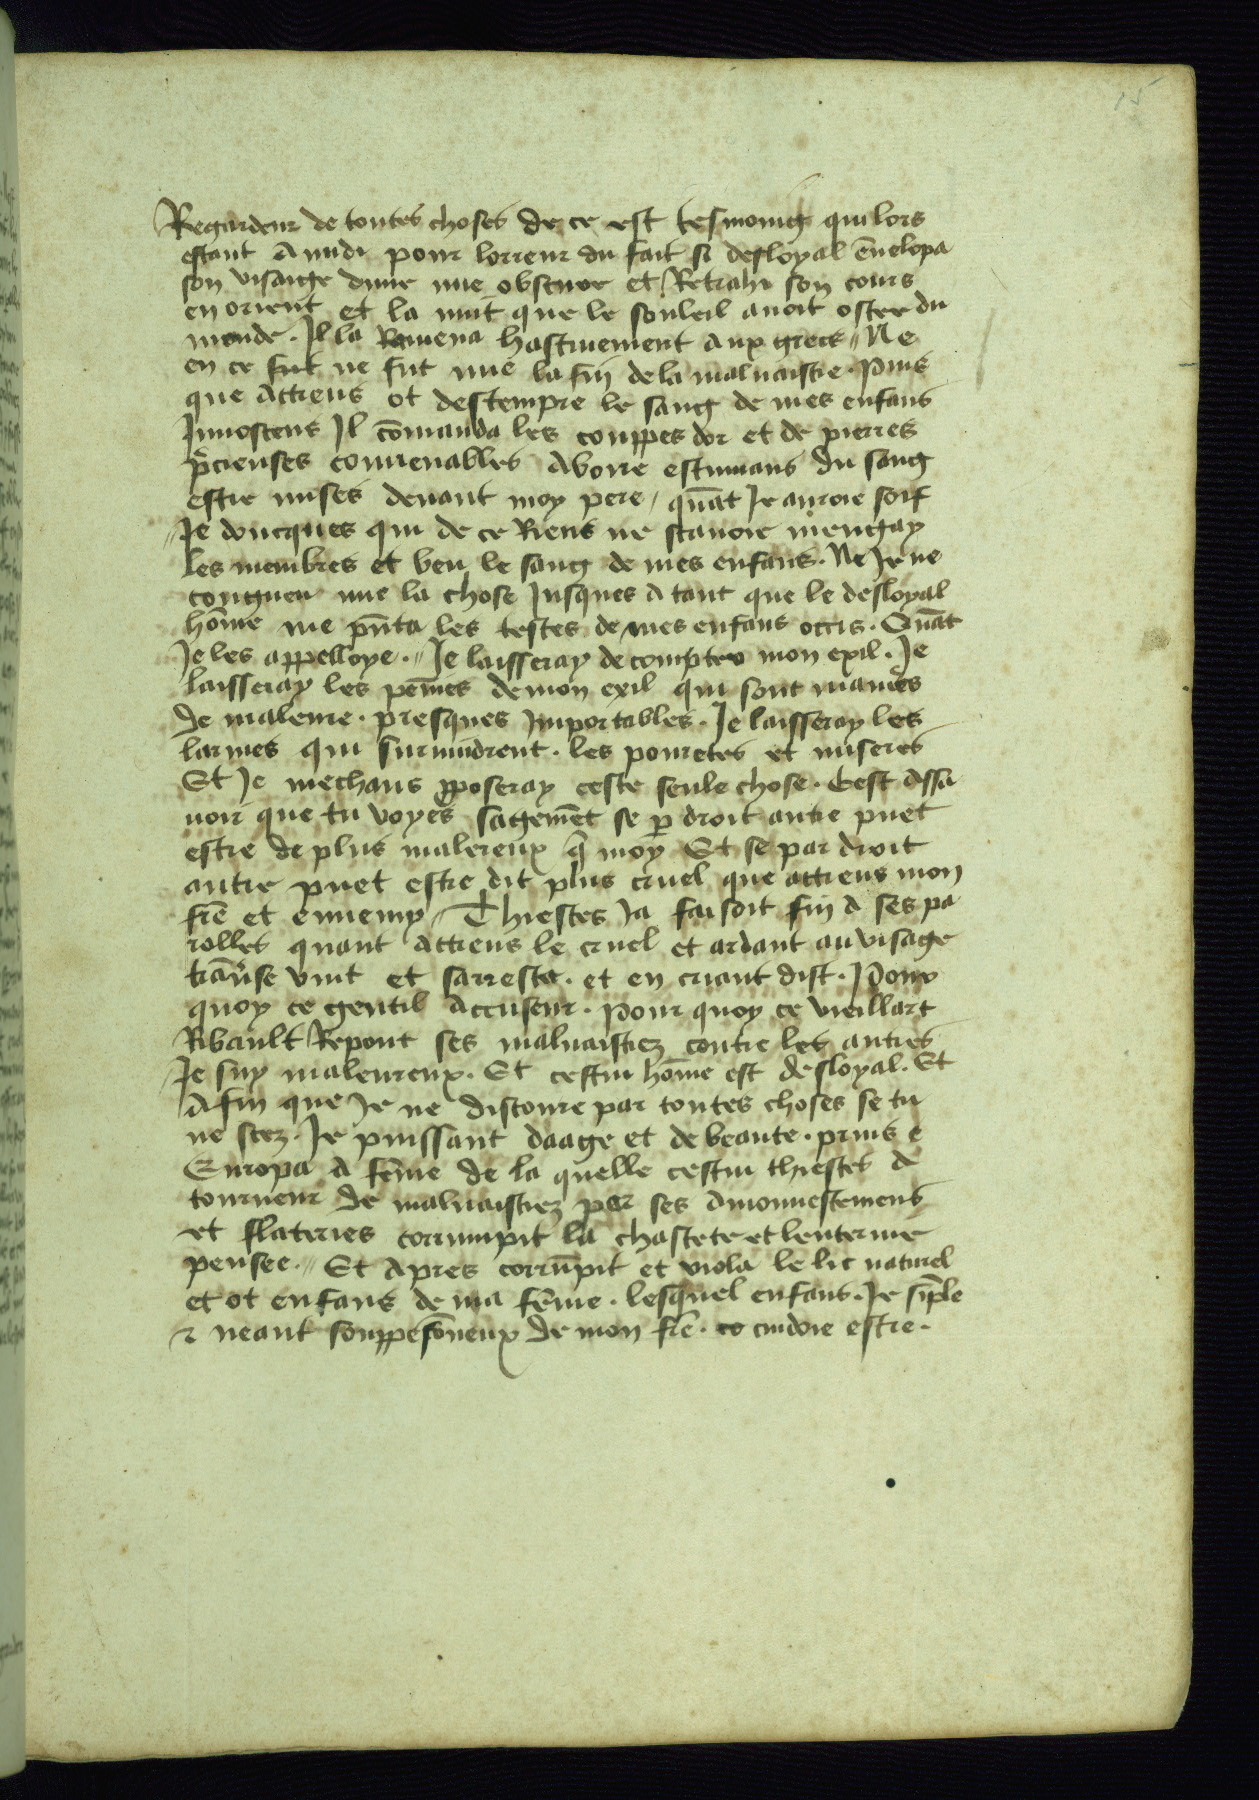 15
Regardeur de toutes choses de ce est tesmoing qui lors
estant a midi pour lorreur du fait si desloyal ẽuelopa
son visaige dune nue obscure et Retrahi son cours
en orient et la nuit que le souleil auoit ostee du
monde. Il la Ramena hastiuement aux grecs // Ne
en ce fut ne fut mie la fin de la maluaistie. Puis
que Attreus ot destempre le sang de mes enfans
Innoscens Il cõmanda les couppes dor et de pierres
p̃cieuses conuenables a boire estimans du sang
estre mises deuant moy pere / quãt Je auroie soif
// Je doncques qui de ce Riens ne scauoie mengay
les membres et beu le sang de mes enfans. Ne Je ne
congneu mie la chose Jusques a tant que le desloyal
hõme me p̃nta les testes de mes enfans occis. Quãt
Je les appelloye. // Je laisseray de compter mon exil. Je
laisseray les peĩnes de mon exil qui sont manieres
de maleure. presques Importables. Je laisseray les
larmes qui suruindrent. les pouretes et miseres
Et Je mechans p̃poseray ceste seule chose. Cest assa
uoir que tu voyes sagemẽt se p droit autre puet
estre de plus malereux q̃ moy Et se par droit
autre puet estre dit plus cruel que attreus mon
fr̃e et ennemy // Thiestes Ja faisoit fin a ses pa
rolles quant Attreus le cruel et ardant au visage
trãuse vint et sarresta. et en criant dist. Pour
quoy ce gentil Accuseur. pour quoy ce vieillart
Ribault Repont ses maluaistiez contre les autres
// Je suy maleureux. Et cestui hõme est desloyal. Et
Afin que Je ne discoure par toutes choses se tu
ne scez. Je puissant daage et de beaute. prins e
Europa a fẽme de la quelle cestui thiestes a
tourneur de maluaistiez par ses amonnestemens
et flateries corrumpit la chastete et lenterine
pensee. // Et apres corrũpit et viola le lit naturel
et ot enfans de ma fẽme. lesquel enfans. Je sĩple
et neant souppesõneux de mon fr̃e. cuidoie estre.